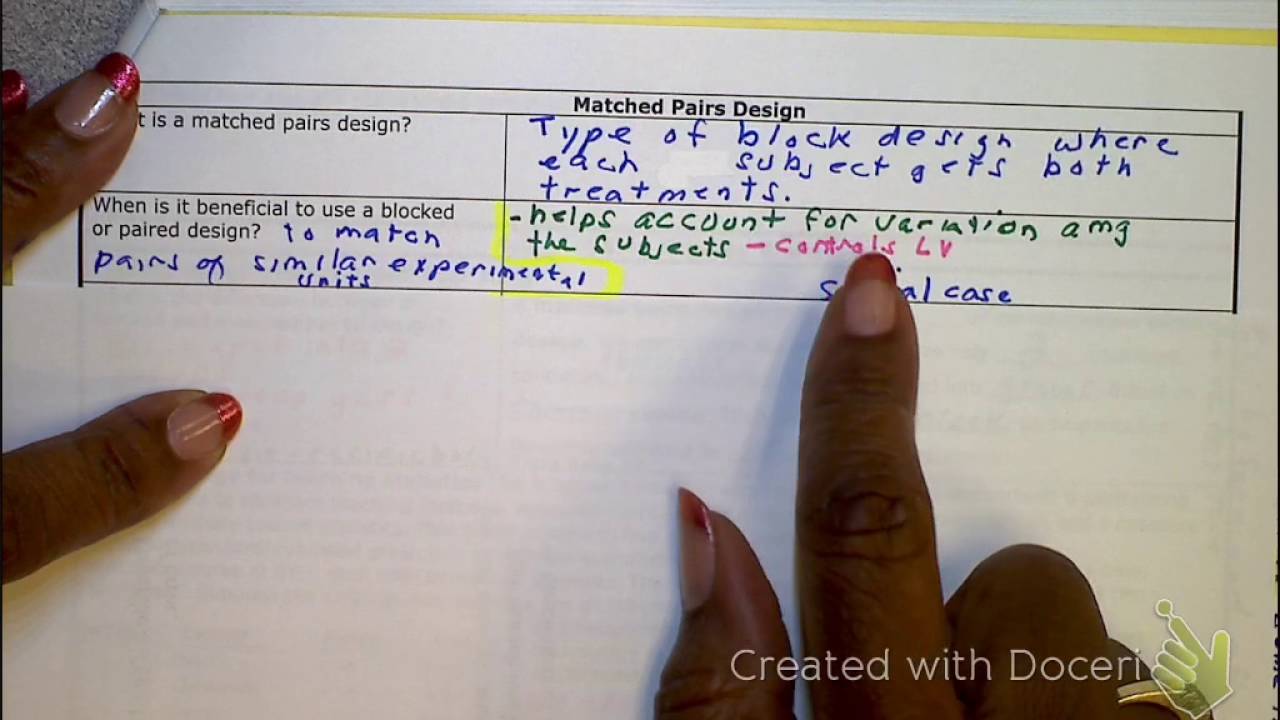 Matched Pairs Design
t is a matched pairs design?
Type of block design where
each subject gets both
treatments.
When is it beneficial to use a blocked
or paired design? to match
pairs of similar experimental
units
- helps account for variation amg
the subjects - controls LV
case
Created with Doceri